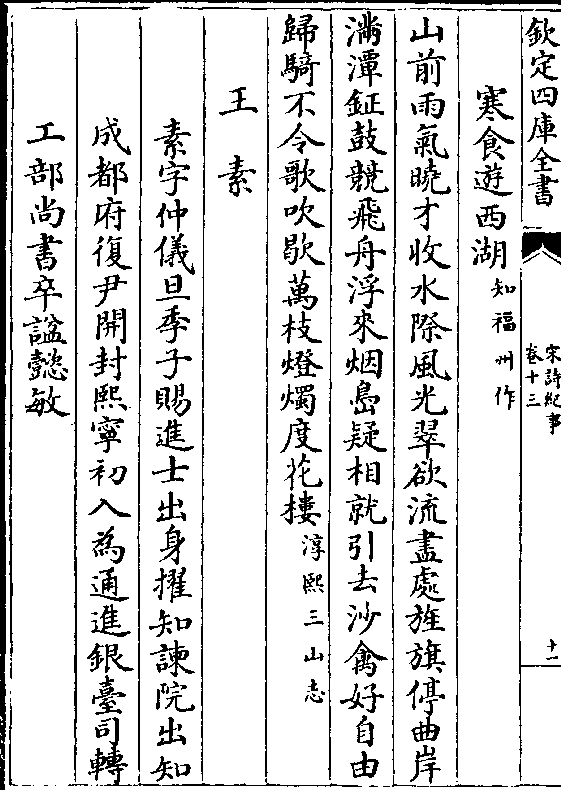 欽定四庫全書
宋詩紀事
卷十三
十一
寒食遊西湖知福州作
山前雨氣曉才收水際風光翠欲流盡處旌旗停曲岸
滿潭鉦鼓競飛舟浮來烟島疑相就引去沙禽好自由
歸騎不令歌吹歇萬枝燈燭度花樓淳熙三山志
王素
素字仲儀旦季子賜進士出身擢知諫院出知
成都府復尹開封熙寧初入為通進銀臺司轉
工部尚書卒諡懿敏